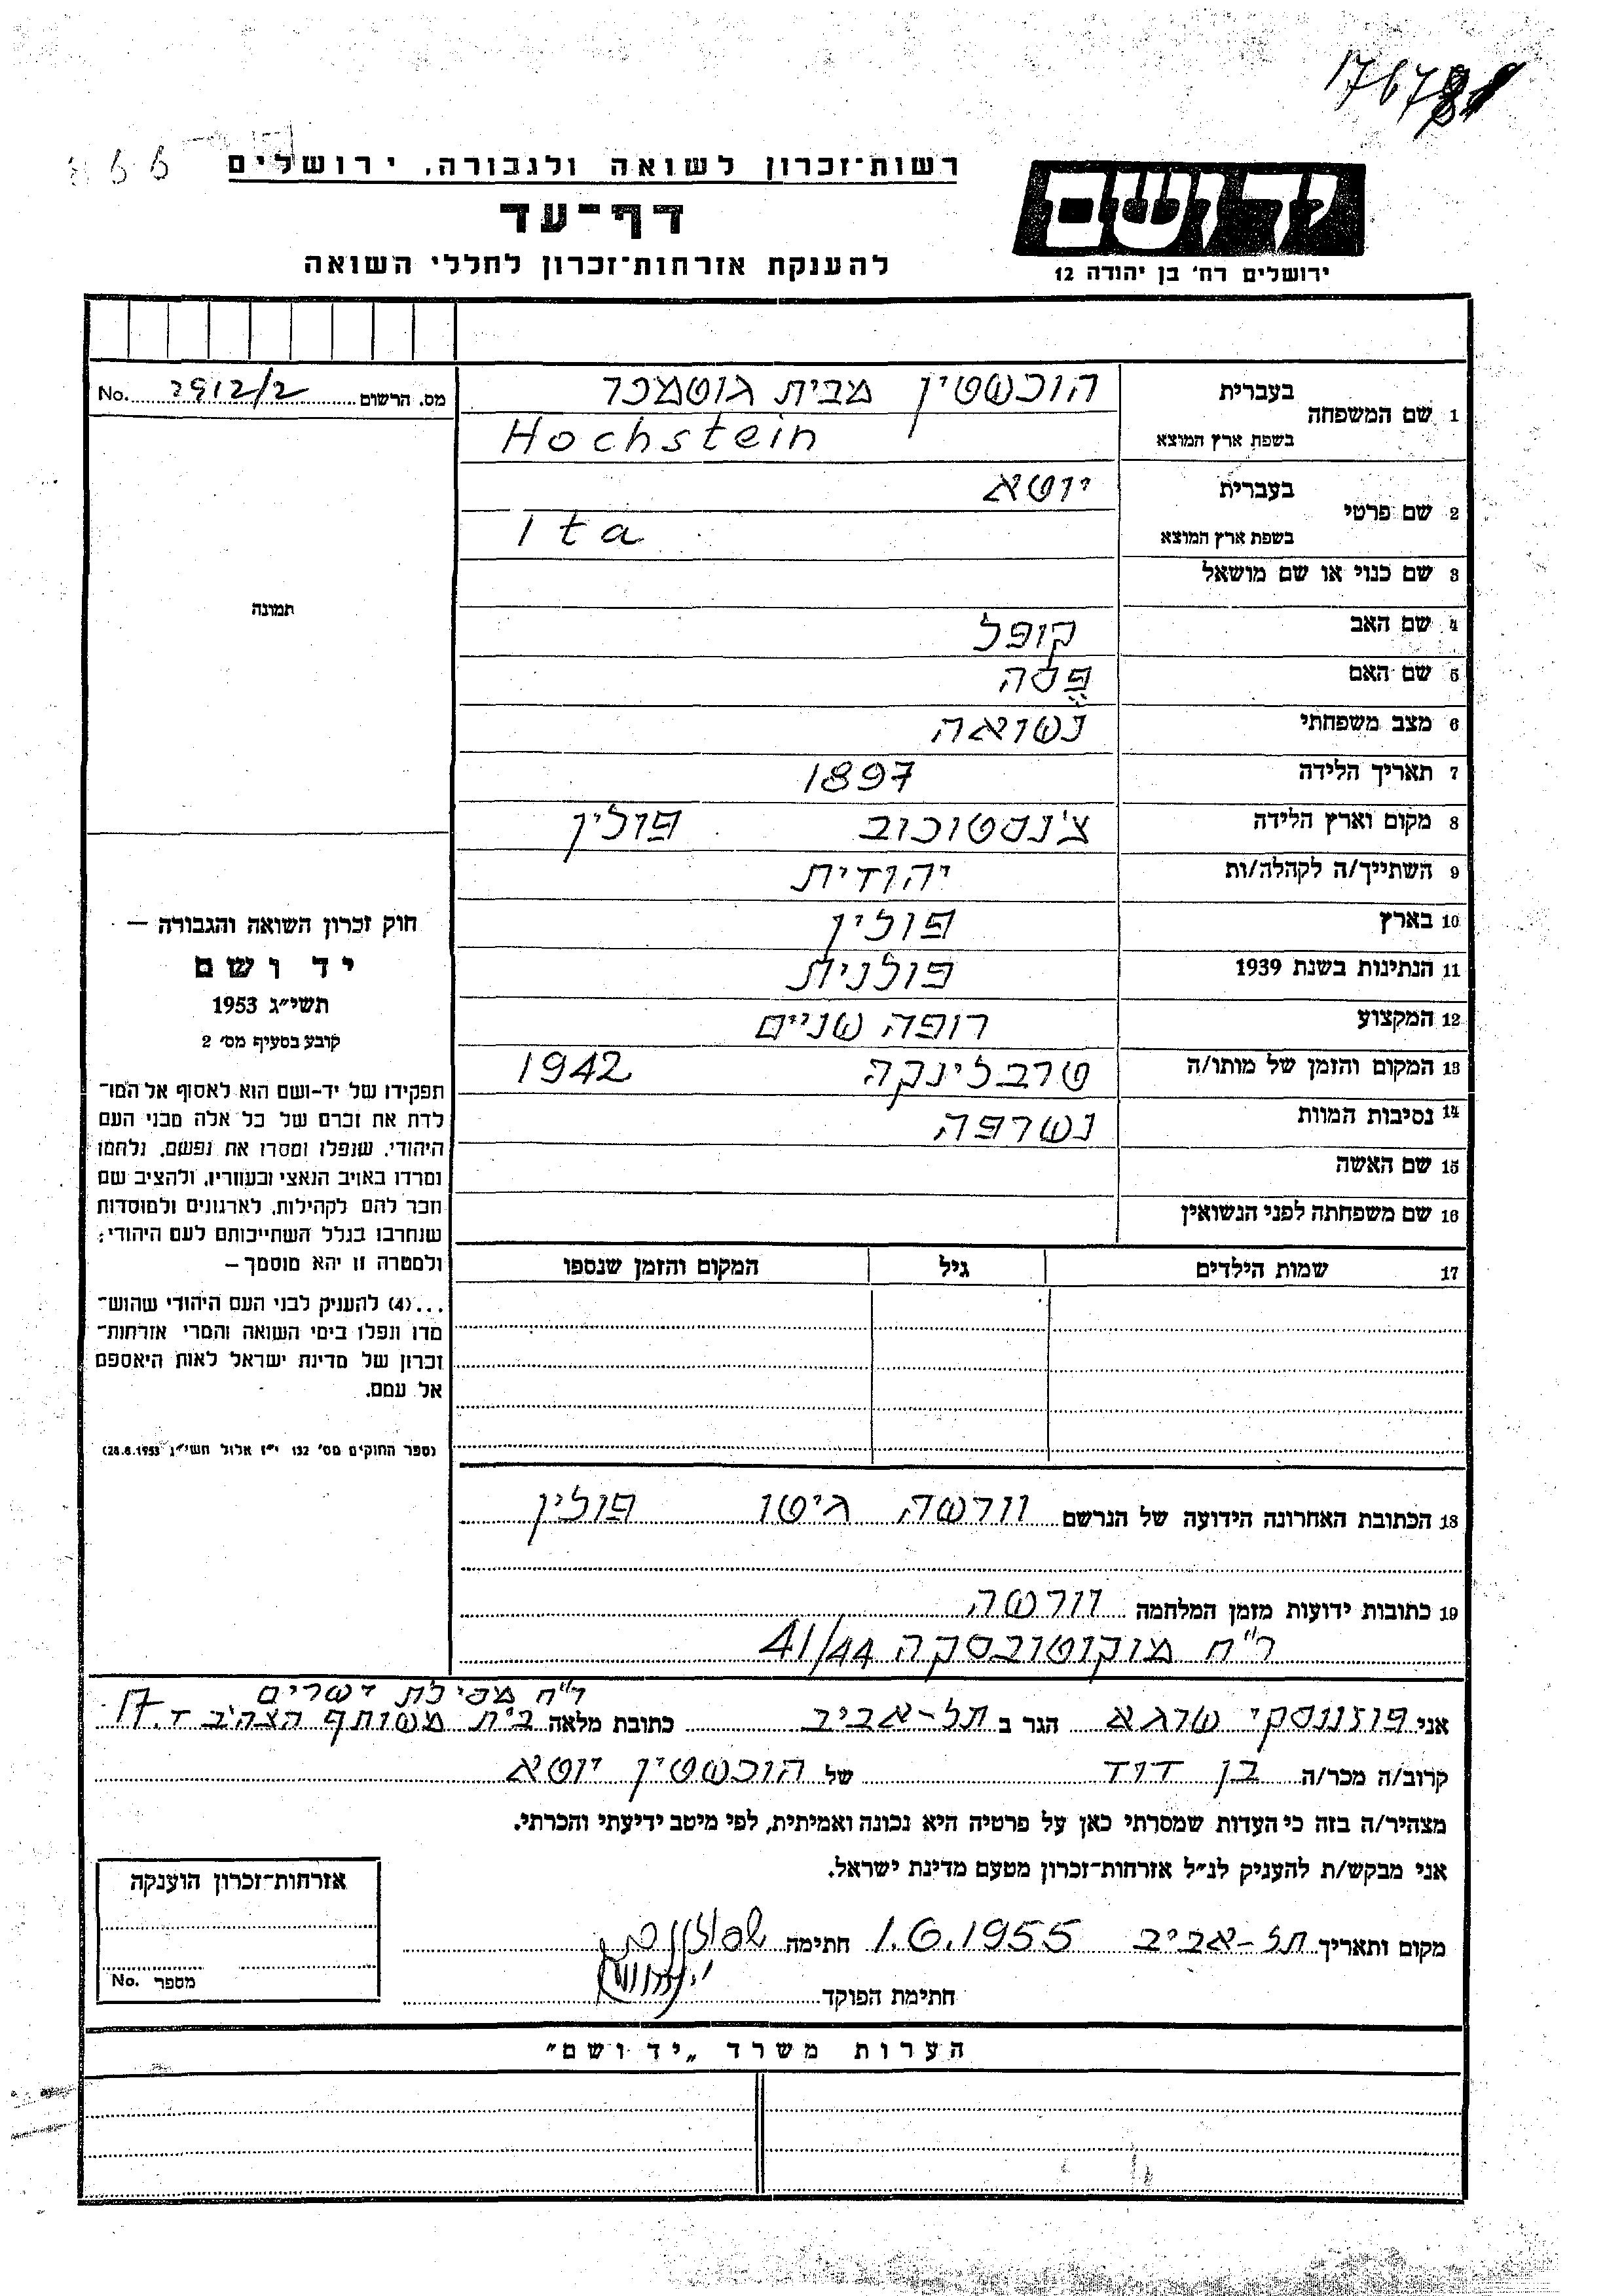 17678
רשות־זכרון לשואה ולגבורה, ירושלים
דף־עד
להענקת אזרחות־זכרון לחללי השואה
יד ושם
ירושלים רח׳ בן יהודה 12
מס. הרשום 2912/2 No.
1 שם המשפחה בעברית הוכשטין מבית גוטמכר
בשפת ארץ המוצא Hochstein
2 שם פרטי בעברית יוטא
בשפת ארץ המוצא Ita
3 שם כנוי או שם מושאל
4 שם האב קופל
5 שם האם פסה
6 מצב משפחתי נשואה
7 תאריך הלידה 1897
8 מקום וארץ הלידה צ׳נסטוכוב פולין
9 השתייך/ה לקהלה/ות יהודית
10 בארץ פולין
11 הנתינות בשנת 1939 פולנית
12 המקצוע רופה שניים
13 המקום והזמן של מותו/ה טרבלינקה 1942
14 נסיבות המוות נשרפה
15 שם האשה
16 שם משפחתה לפני הנשואין
17 שמות הילדים גיל המקום והזמן שנספו
תמונה
חוק זכרון השואה והגבורה –
יד ושם
תשי״ג 1953
קובע בסעיף מס׳ 2
תפקידו של יד-ושם הוא לאסוף אל המו־
לדת את זכרם של כל אלה מבני העם
היהודי, שנפלו ומסרו את נפשם, נלחמו
ומרדו באויב הנאצי ובעוזריו, ולהציב שם
וזכר להם לקהילות, לארגונים ולמוסדות
שנחרבו בגלל השתייכותם לעם היהודי;
ולמטרה זו יהא מוסמך –
...(4) להעניק לבני העם היהודי שהוש־
מדו ונפלו בימי השואה והמרי אזרחות־
זכרון של מדינת ישראל לאות היאספם
אל עמם.
(ספר החוקים מס׳ 132 י״ז אלול תשי״ג 28.8.1953)
18 הכתובת האחרונה הידועה של הנרשם וורשה גיטו פולין
19 כתובות ידועות מזמן המלחמה וורשה
ר״ח מוקוטובסקה 41/44
ר״ח מסילת ישרים
אני פוזננסקי שרגא הגר ב תל-אביב כתובת מלאה בית משותף הצה׳ב ד. 17
קרוב/ה מכר/ה בן דוד של הוכשטין יוטא
מצהיר/ה בזה כי העדות שמסרתי כאן על פרטיה היא נכונה ואמיתית, לפי מיטב ידיעתי והכרתי.
אני מבקש/ת להעניק לנ״ל אזרחות־זכרון מטעם מדינת ישראל.
מקום ותאריך תל-אביב 1.6.1955 חתימה
חתימת הפוקד
אזרחות־זכרון הוענקה
מספר No.
הערות משרד „יד ושם״